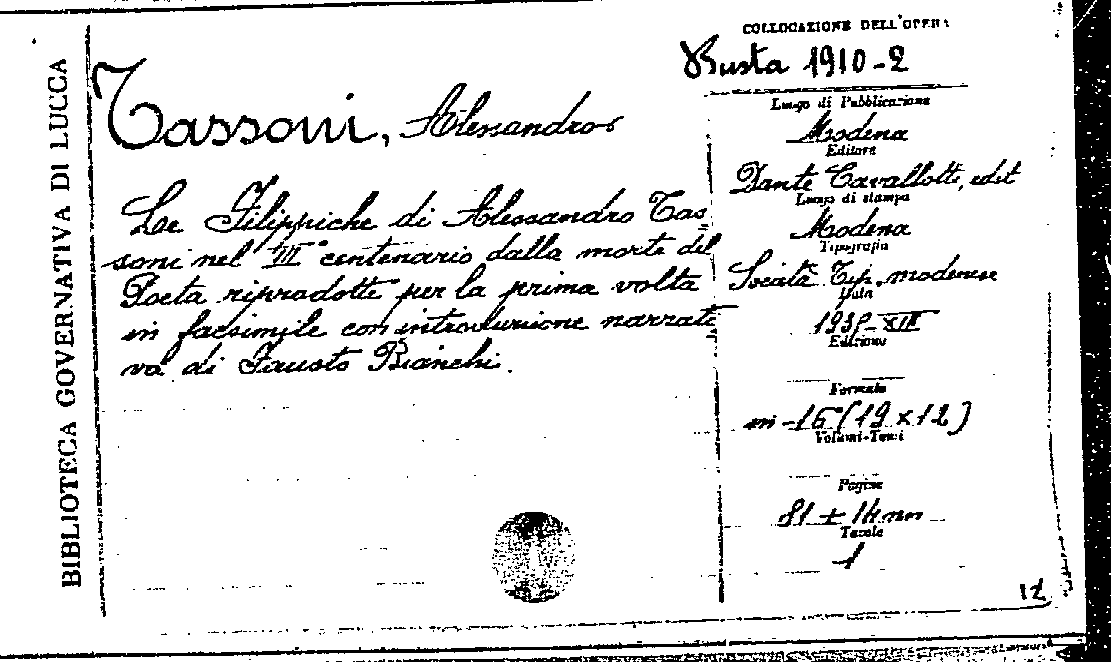 BIBLIOTECA GOVERNATIVA DI LUCCA
Tassoni, Alessandro
Le Filippiche di Alessandro Tas
soni nel III° centenario dalla morte del
Poeta riprodotte per la prima volta
in facsimile con introduzione narrati
va di Fausto Bianchi.
COLLOCAZIONE DELL'OPERA
Busta 1910-2
Luogo di Pubblicazione
Modena
Editore
Dante Cavallotti, edit
Luogo di stampa
Modena
Tipografia
Società Tip. modenese
Data
XIII
Edizione
Formato
in-16°(19x12)
Volumi-Tomi
Pagine
81 + 14 nn
Tavole
1
12